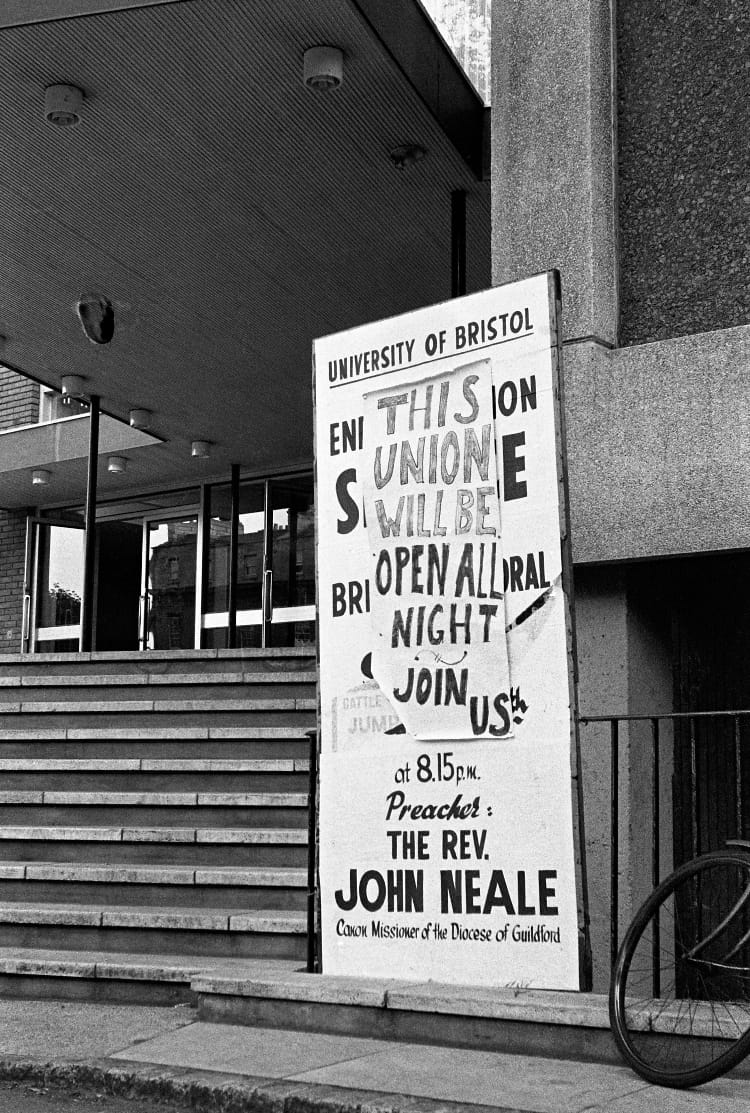 UNIVERSITY OF BRISTOL
THIS
UNION
WILL BE
OPEN ALL
NIGHT
JOIN
US
at 8.15p.m.
Preacher:
THE REV.
JOHN NEALE
Canon Missioner of the Diocese of Guildford